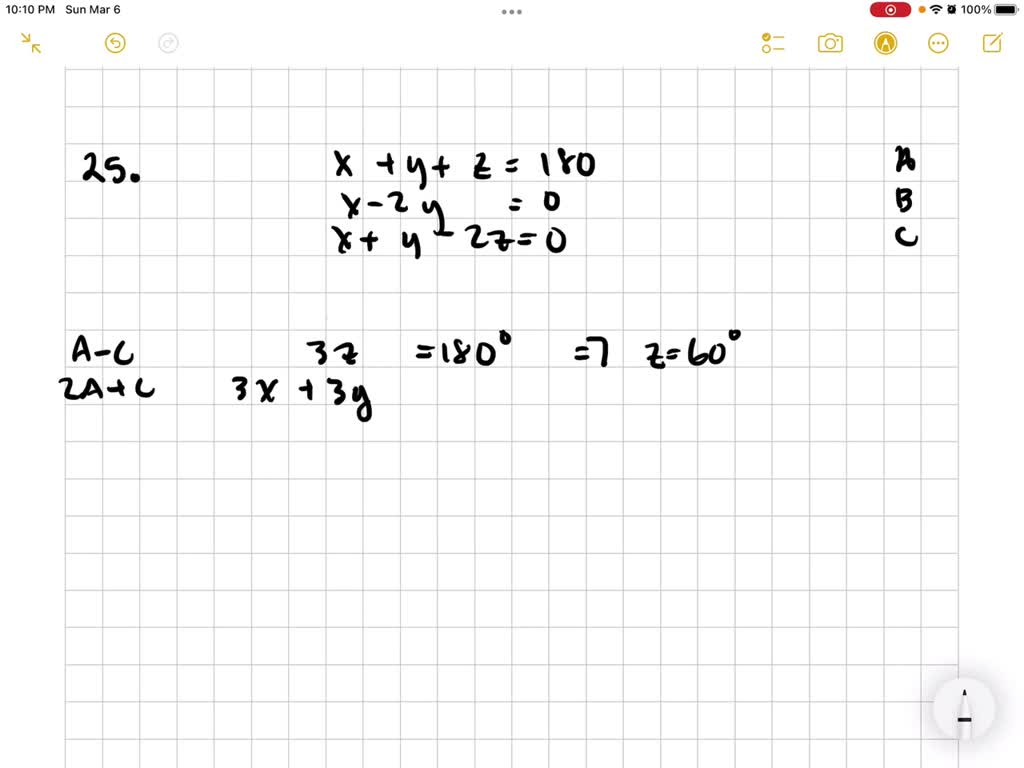 10:10 PM Sun Mar 6
100%
25. x + y + z = 180 A
x - 2y = 0 B
x + y - 2z = 0 C
A-C 3z = 180° => z = 60°
2A+C 3x + 3y